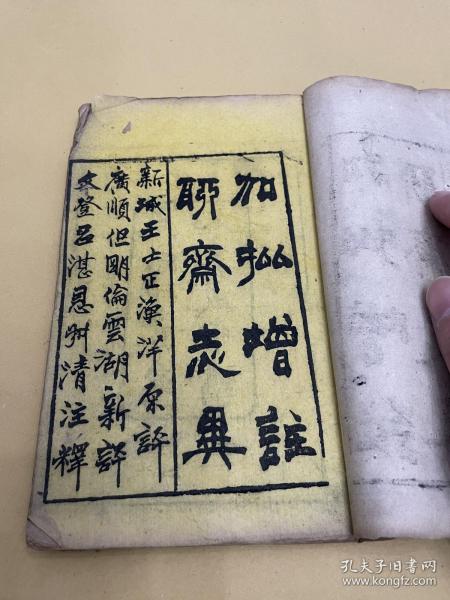 加批增註
聊齋志異
新城王士正漁洋原評
廣順但明倫雲湖新評
文登呂湛恩叔清注釋
孔夫子旧书网
www.kongfz.com